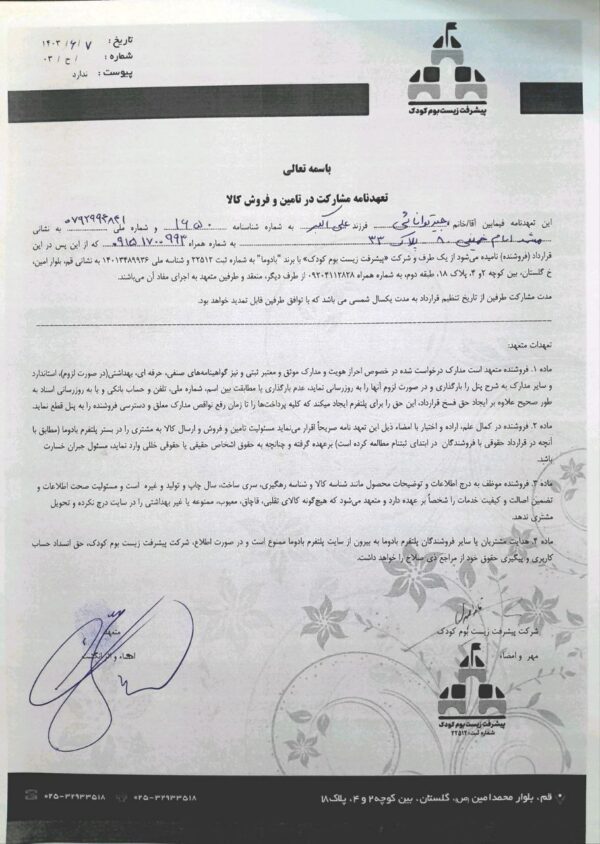 تاریخ : ۱۴۰۳/۶/۷
شماره : / ح / ۰۳
پیوست : ندارد
پیشرفت زیست بوم کودک
باسمه تعالی
تعهدنامه مشارکت در تامین و فروش کالا
این تعهدنامه فیمابین آقا/خانم توانائی فرزند علی اکبر به شماره شناسنامه ۱۶۵۰ و شماره ملی ۰۷۹۲۹۹۳۸۴۱ به نشانی
مشهد امام خمینی ۸۰ پلاک ۳۳ به شماره همراه ۰۹۱۵۱۷۰۰۹۹۳ که از این پس در این
قرارداد (فروشنده) نامیده می‌شود از یک طرف و شرکت "پیشرفت زیست بوم کودک" با برند "بادوما" به شماره ثبت ۲۲۵۱۲ و شناسه ملی ۱۴۰۱۳۴۸۹۹۳۶ به نشانی قم، بلوار امین،
خ گلستان، بین کوچه ۲و ۴، پلاک ۱۸، طبقه دوم، به شماره همراه ۰۹۲۰۴۱۱۲۸۲۸ از طرف دیگر، منعقد و طرفین متعهد به اجرای مفاد آن می‌باشند.
مدت مشارکت طرفین از تاریخ تنظیم قرارداد به مدت یکسال شمسی می باشد که با توافق طرفین قابل تمدید خواهد بود.
تعهدات متعهد:
ماده ۱. فروشنده متعهد است مدارک درخواست شده در خصوص احراز هویت و مدارک موثق و معتبر ثبتی و نیز گواهینامه‌های صنفی، حرفه ای، بهداشتی(در صورت لزوم)، استاندارد
و سایر مدارک به شرح پنل را بارگذاری و در صورت لزوم آنها را به روزرسانی نماید، عدم بارگذاری یا مطابقت بین اسم، شماره ملی، تلفن و حساب بانکی و یا به روزرسانی اسناد به
طور صحیح علاوه بر ایجاد حق فسخ قرارداد، این حق را برای پلتفرم ایجاد میکند که کلیه پرداخت‌ها را تا زمان رفع نواقص مدارک معلق و دسترسی فروشنده را به پنل قطع نماید.
ماده ۲. فروشنده در کمال علم، اراده و اختیار با امضاء ذیل این تعهد نامه صریحاً اقرار می‌نماید مسئولیت تامین و فروش و ارسال کالا به مشتری را در بستر پلتفرم بادوما (مطابق با
آنچه در قرارداد حقوقی با فروشندگان در ابتدای ثبتنام مطالعه کرده است) برعهده گرفته و چنانچه به حقوق اشخاص حقیقی یا حقوقی خللی وارد نماید، مسئول جبران خسارت
باشد.
ماده ۳. فروشنده موظف به درج اطلاعات و توضیحات محصول مانند شناسه کالا و شناسه رهگیری، سری ساخت، سال چاپ و تولید و غیره است و مسئولیت صحت اطلاعات و
تضمین اصالت و کیفیت خدمات را شخصاً بر عهده دارد و متعهد می‌شود که هیچ‌گونه کالای تقلبی، قاچاق، معیوب، ممنوعه یا غیر بهداشتی را در سایت درج نکرده و تحویل
مشتری ندهد.
ماده ۴. هدایت مشتریان یا سایر فروشندگان پلتفرم بادوما به بیرون از سایت پلتفرم بادوما ممنوع است و در صورت اطلاع، شرکت پیشرفت زیست بوم کودک، حق انسداد حساب
کاربری و پیگیری حقوق خود از مراجع ذی صلاح را خواهد داشت.
شرکت پیشرفت زیست بوم کودک
متعهد
مهر و امضاء
امضاء و اثر انگشت
پیشرفت زیست بوم کودک
شماره ثبت: ۲۲۵۱۲
قم، بلوار محمدامین (ص)، گلستان، بین کوچه ۲ و ۴، پلاک ۱۸
۰۲۵-۳۲۹۳۳۵۱۸
۰۲۵-۳۲۹۳۳۵۱۸